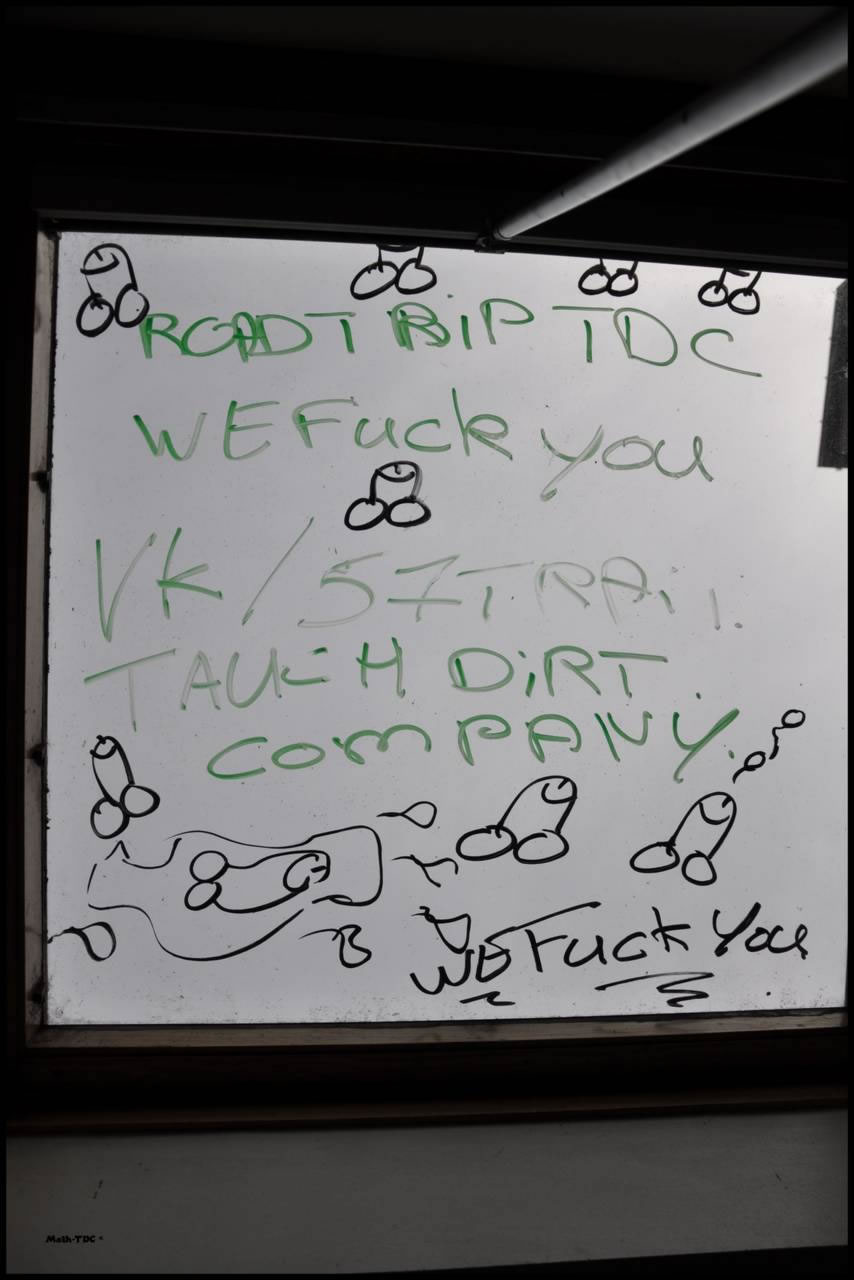 ROADTRIP TDC
WE Fuck you
VK / 57 TRAIL.
TAUCH DIRT
COMPANY.
WE Fuck You
Math-TDC